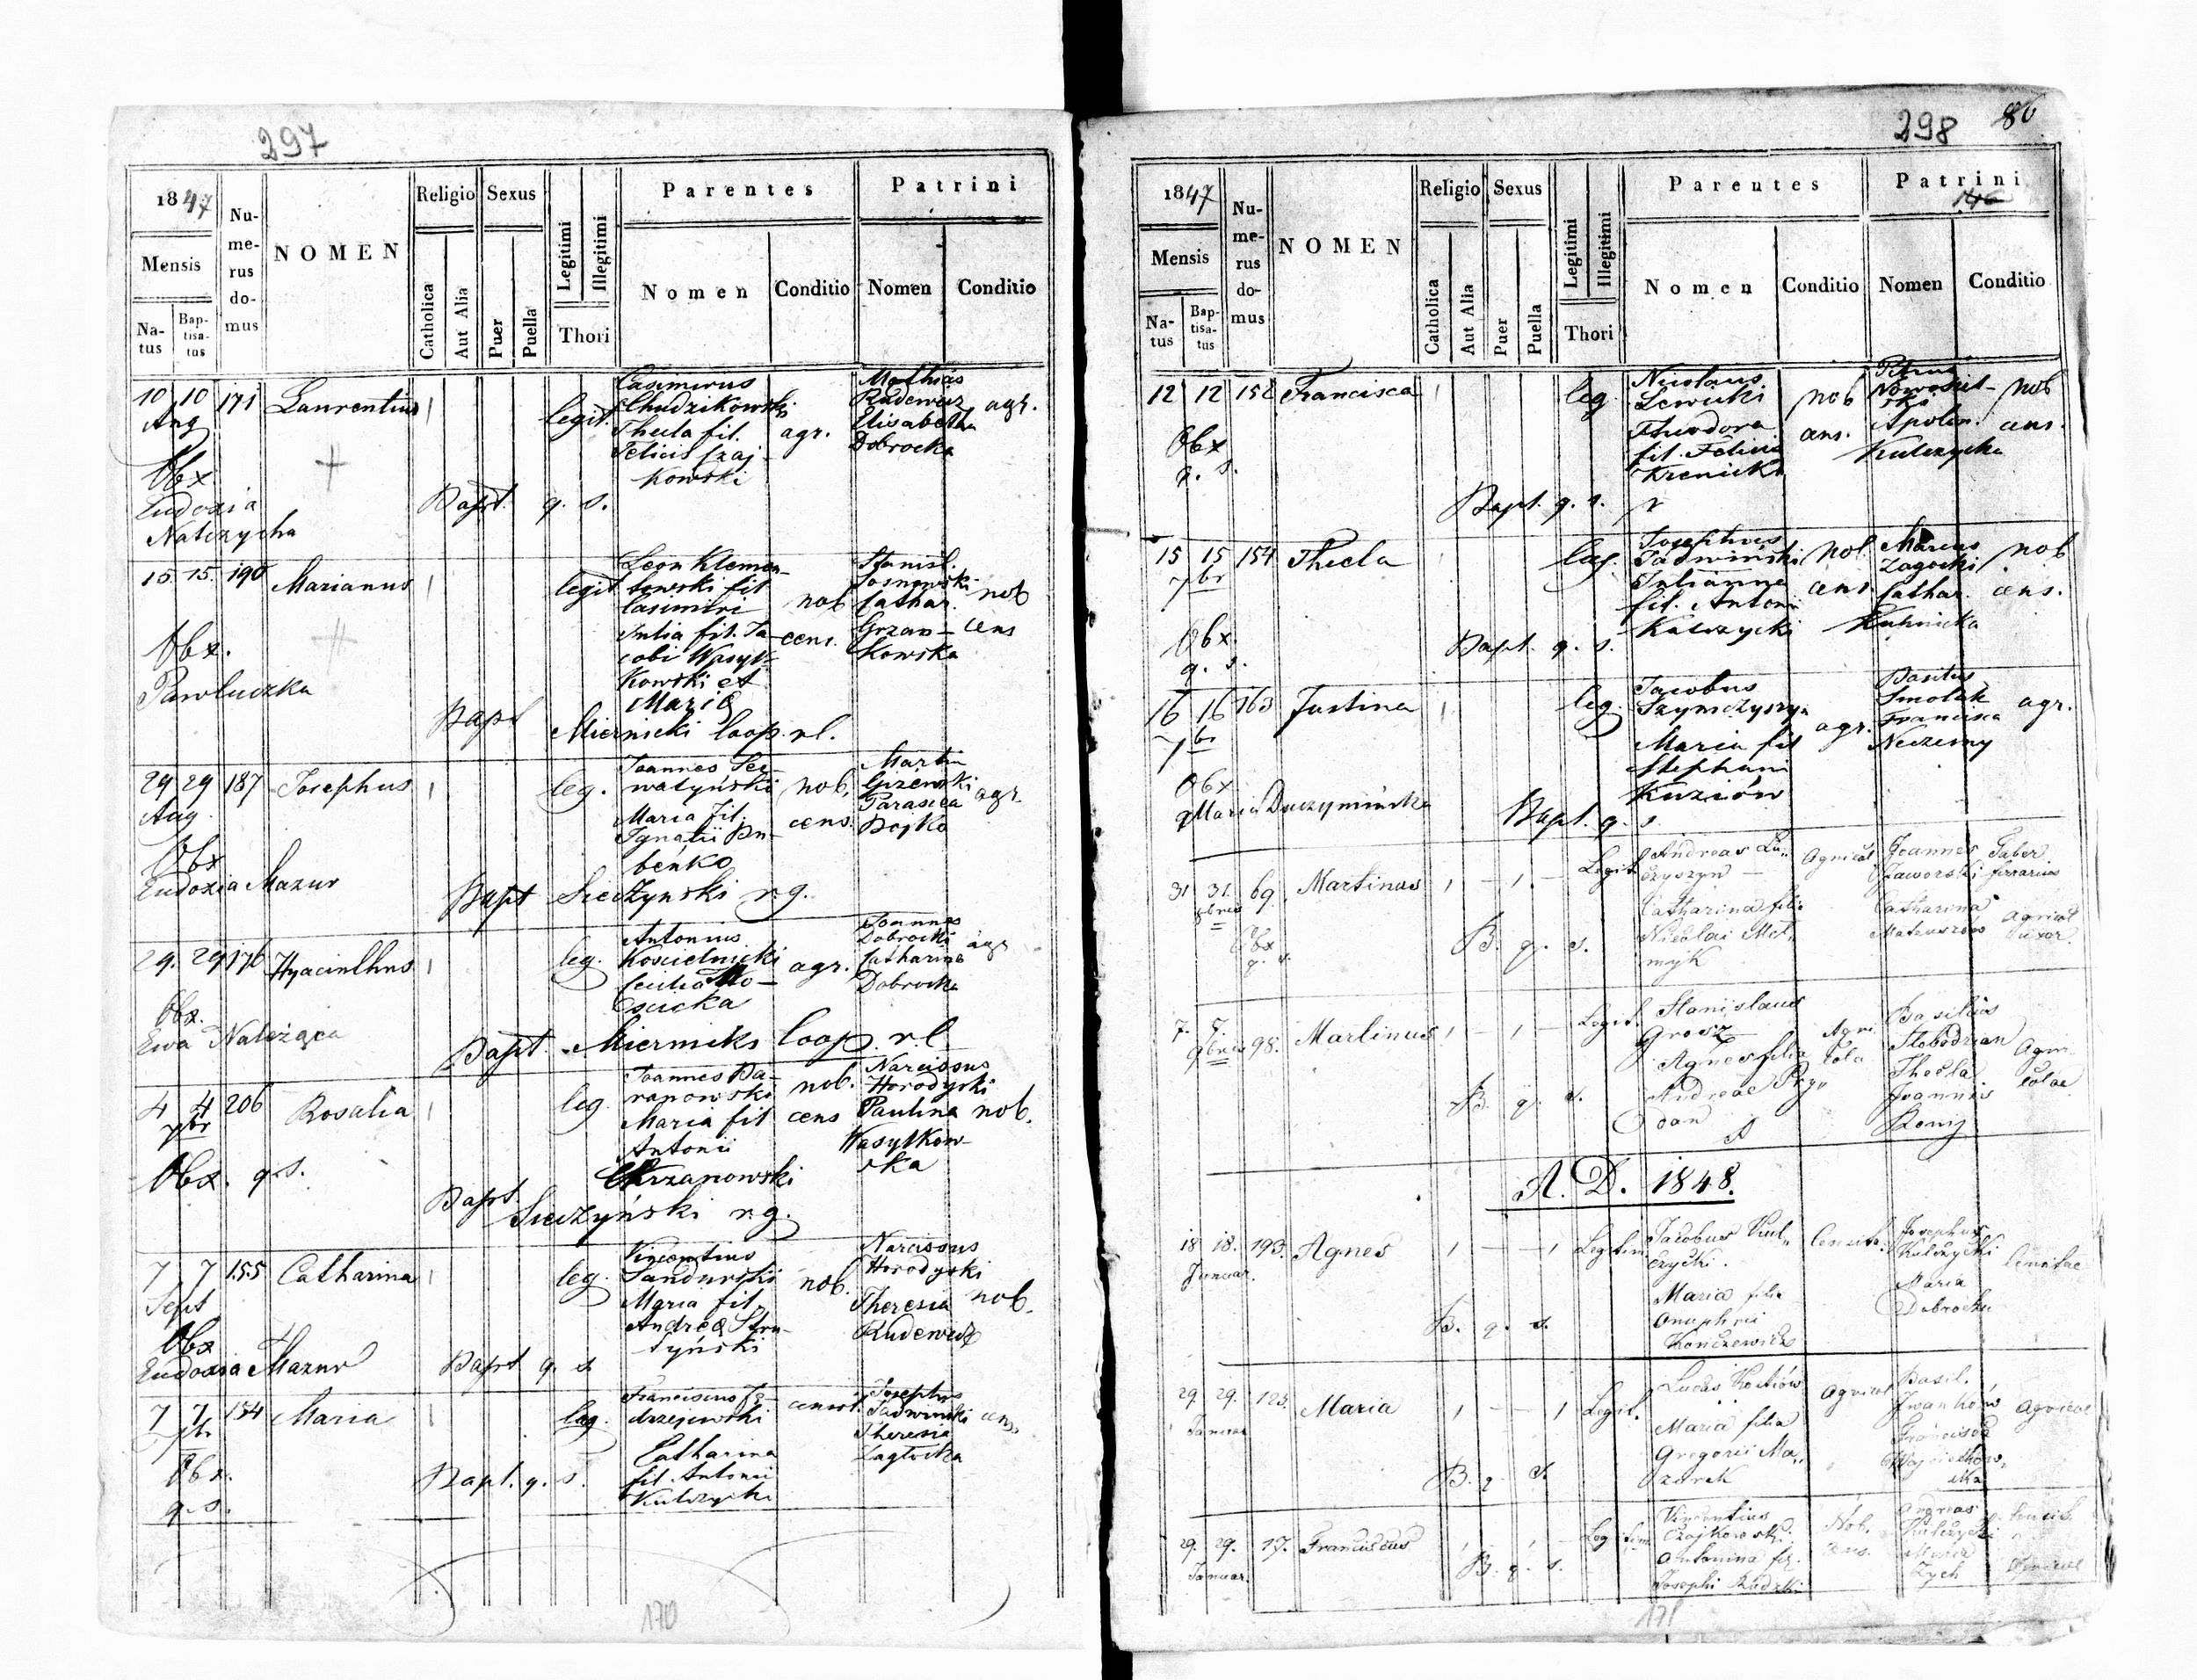 297
1847
Mensis
Na-
tus
Bap-
tisa-
tus
Nu-
me-
rus
do-
mus
NOMEN
Religio
Catholica
Aut Alia
Sexus
Puer
Puella
Legitimi
Illegitimi
Thori
Parentes
Nomen
Conditio
Patrini
Nomen
Conditio
10 10 171 Laurentius
Aug
legit.
Casimirus
Chudzikowski
Thecla fil.
Felicis Czaj-
kowski
agr.
Mathias
Rudewicz
Elisabetha
Dobrocka
agr.
Obx
Eudoxia
Bapt. q. s.
15. 15. 190 Marianus
legit
Leon Klemen-
towski fil
Casimiri
Julia fil. Ja-
cobi Wasyl-
kowski et
Maria
nob
cens.
Stanisl.
Sosnowski
Cathar.
Grzan-
kowska
nob
cens
Obx.
Pawluczka
Bapt
Miernicki Coop. r.l.
29 29 187 Josephus
Aug
leg.
Joannes Se-
watyński
Maria fil.
Ignatii Bu-
beńko
nob.
cens.
Martin
Gizewski
Parasica
Bojko
agr.
Obx
Eudoxia Mazur
Bapt Sieczynski r.g.
29. 29 176 Hyacinthus
leg.
Antonius
Koscielnicki
agr.
Joannes
Dobrocki
Catharina
Dobrocka
agr
Obx.
Ewa Należąca
Bapt. Miernicki Coop. r.l.
4 4 206 Rosalia
7br
leg.
Joannes Ba-
ranowski
Maria fil
Antonii
Chrzanowski
nob.
cens
Narcissus
Horodyski
Paulina
Wasylkow-
ska
nob.
Obx. q.s.
Bapt.
Sieczyński r.g.
7 7 155 Catharina
Sept
leg.
Vincentius
Sandurski
Maria fil.
Andreæ Stru-
tyński
nob.
Narcissus
Horodyski
Theresia
Rudewicz
nob.
Obx
Eudoxia Mazur
Bapt q. s
7 7 154 Maria
7br
leg.
Franciscus Ję-
drzejewski
Catharina
fil. Antonii
Kulczycki
Josephus
Jadwinski
Theresia
Zagłocka
cens.
Obx.
q.s.
Bapt. q. s.
170
298 86
1847
Mensis
Na-
tus
Bap-
tisa-
tus
Nu-
me-
rus
do-
mus
NOMEN
Religio
Catholica
Aut Alia
Sexus
Puer
Puella
Legitimi
Illegitimi
Thori
Parentes
Nomen
Conditio
Patrini
Nomen
Conditio
12 12 152 Francisca
leg.
Nicolaus
Lewicki
Theodora
fil. Felicis
Krenicki
nob
cens.
Petrus
Nowosiel-
ski
Apolon.
Kulczycka
nob
cens.
Obx
q. s.
Bapt. q. s.
15 15 154 Thecla
7br
leg.
Josephus
Jadwiński
Julianna
fil. Antoni
Kulczycki
nob.
cens.
Marcus
Zagocki
Cathar.
nob
cens.
Obx.
q. s.
Bapt. q. s.
16 16 163 Justina
7br
leg.
Jacobus
Szymczyszyn
Maria fil
Stephani
Kuziów
agr.
Basilius
Smolak
Francisca
Neczesny
agr.
Obx
Maria Duczymińska
Bapt. q. s.
31 31. 69. Martinus
8bris
Legit.
Andreas Lu-
czyszyn
Catharina filia
Nicolai Mel-
myk
Agricol
Joannes
Jaworski
Catharina
Mateuszów
Faber
ferrarius
Agricol
uxor.
Obx
q. s.
B. q. s.
7. 7. 98. Martinus
9bris
Legit.
Stanislaus
Grosz
Agnes filia
Andreae Pry-
dan
Agri
cola
Basilius
Slobodzian
Thecla
Joannis
Roniy
Agri-
colae
B. q. s.
A. D. 1848.
18 18. 193. Agnes
Januar.
Legitim
Jacobus Kul-
czycki.
Maria filia
Onuphrii
Konczewicz
Censita.
Josephus
Kulczycki
Maria
Dobrocka
Censitae
B. q. s.
29. 29. 123. Maria
Januar
Legit.
Lucas Kostiów
Maria filia
Gregorii Ma-
zurek
Agricol
Basil.
Iwanków
Francisca
Wojciechow-
ska
Agricol
B. q. s.
29. 29. 17. Franciscus
Januar.
Legitim.
Vincentius
Czajkowski
Antonina fil.
Josephi Rudzki
Nob.
cens.
Andreas
Kulczycki
Maria
Zych
B. q. s.
171